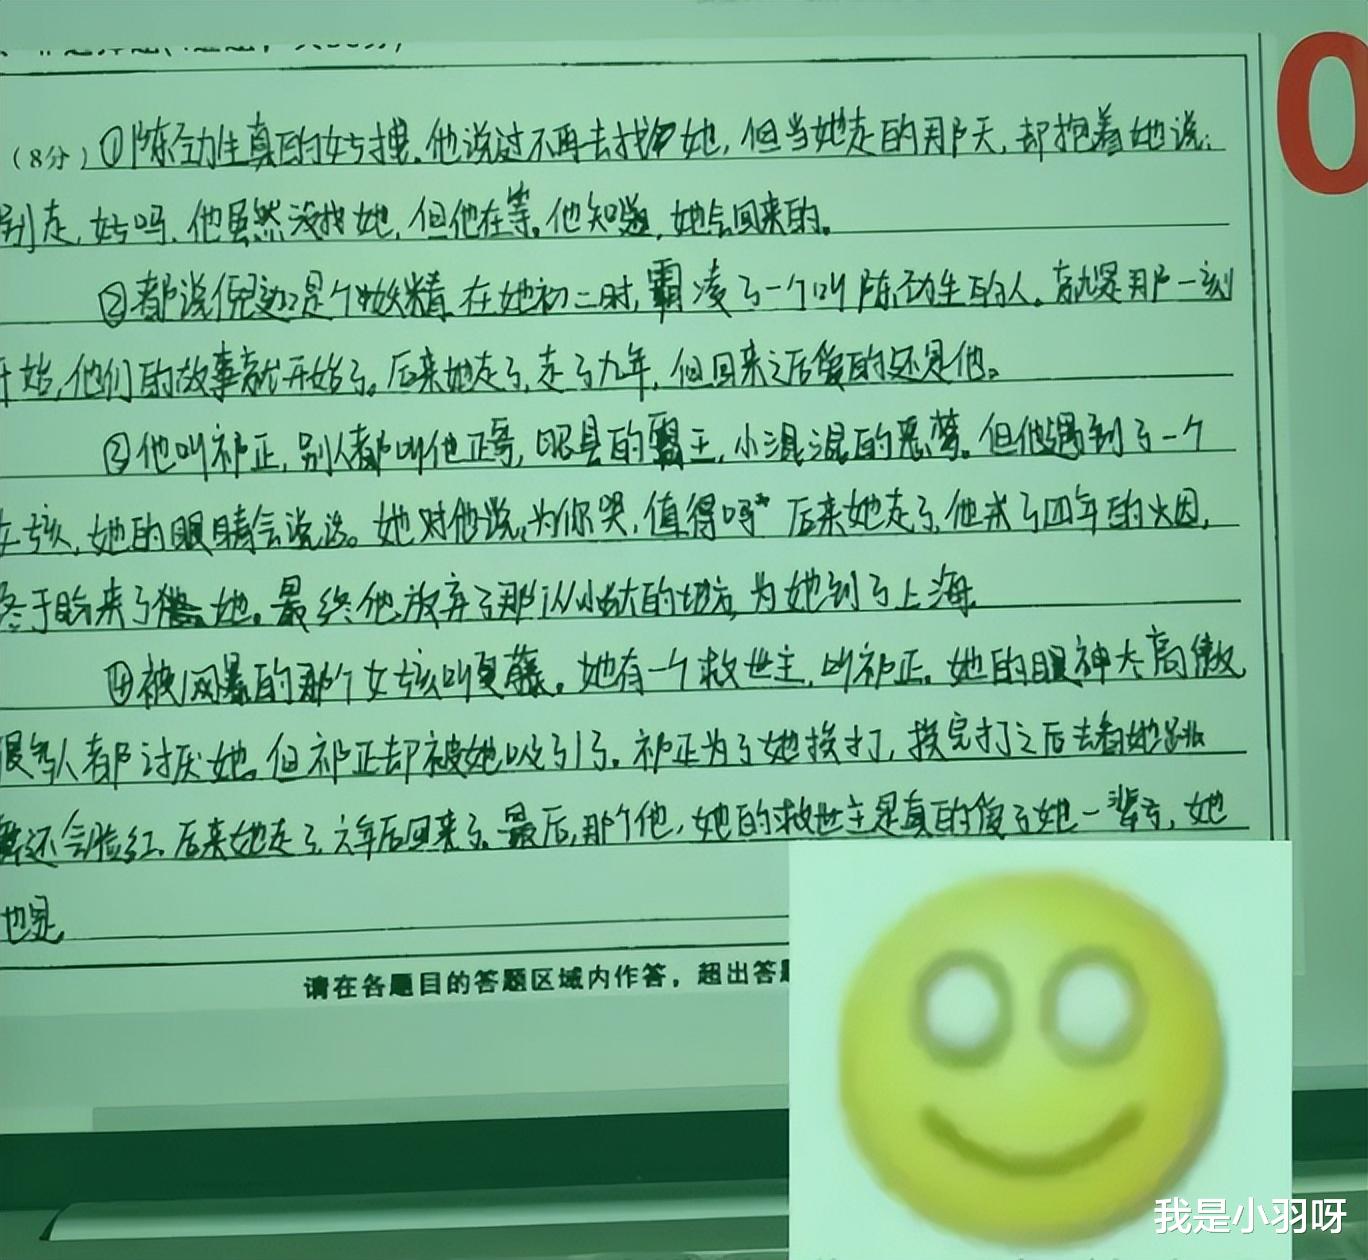 0
(8分) ①陈劲生真的好拽,他说过不再去找她,但当她走的那天,却抱着她说:
别走,好吗,他虽然没找她,但他在等。他知道,她会回来的。
②都说倪迦是个妖精,在她初二时,霸凌了一个叫陈劲生的人。就是那一刻
开始,他们的故事就开始了。后来她走了,走了九年,但回来之后爱的还是他。
③他叫祁正,别人都叫他正哥,昭县的霸王,小混混的恶梦。但他遇到了一个
女孩,她的眼睛会说话。她对他说,为你哭,值得吗" 后来她走了,他戒了四年的烟,
终于盼来了她。最终他放弃了那从小长大的地方,为她到了上海,
④被网暴的那个女孩叫夏藤。她有一个救世主,叫祁正。她的眼神太高傲
很多人都讨厌她,但祁正却被她吸引了。祁正为了她挨打,挨完打之后去看她跳
舞还会脸红。后来她走了,六年后回来了。最后,那个他,她的救世主是真的爱了她一辈子,她
也是,
请在各题目的答题区域内作答,超出答
我是小羽呀